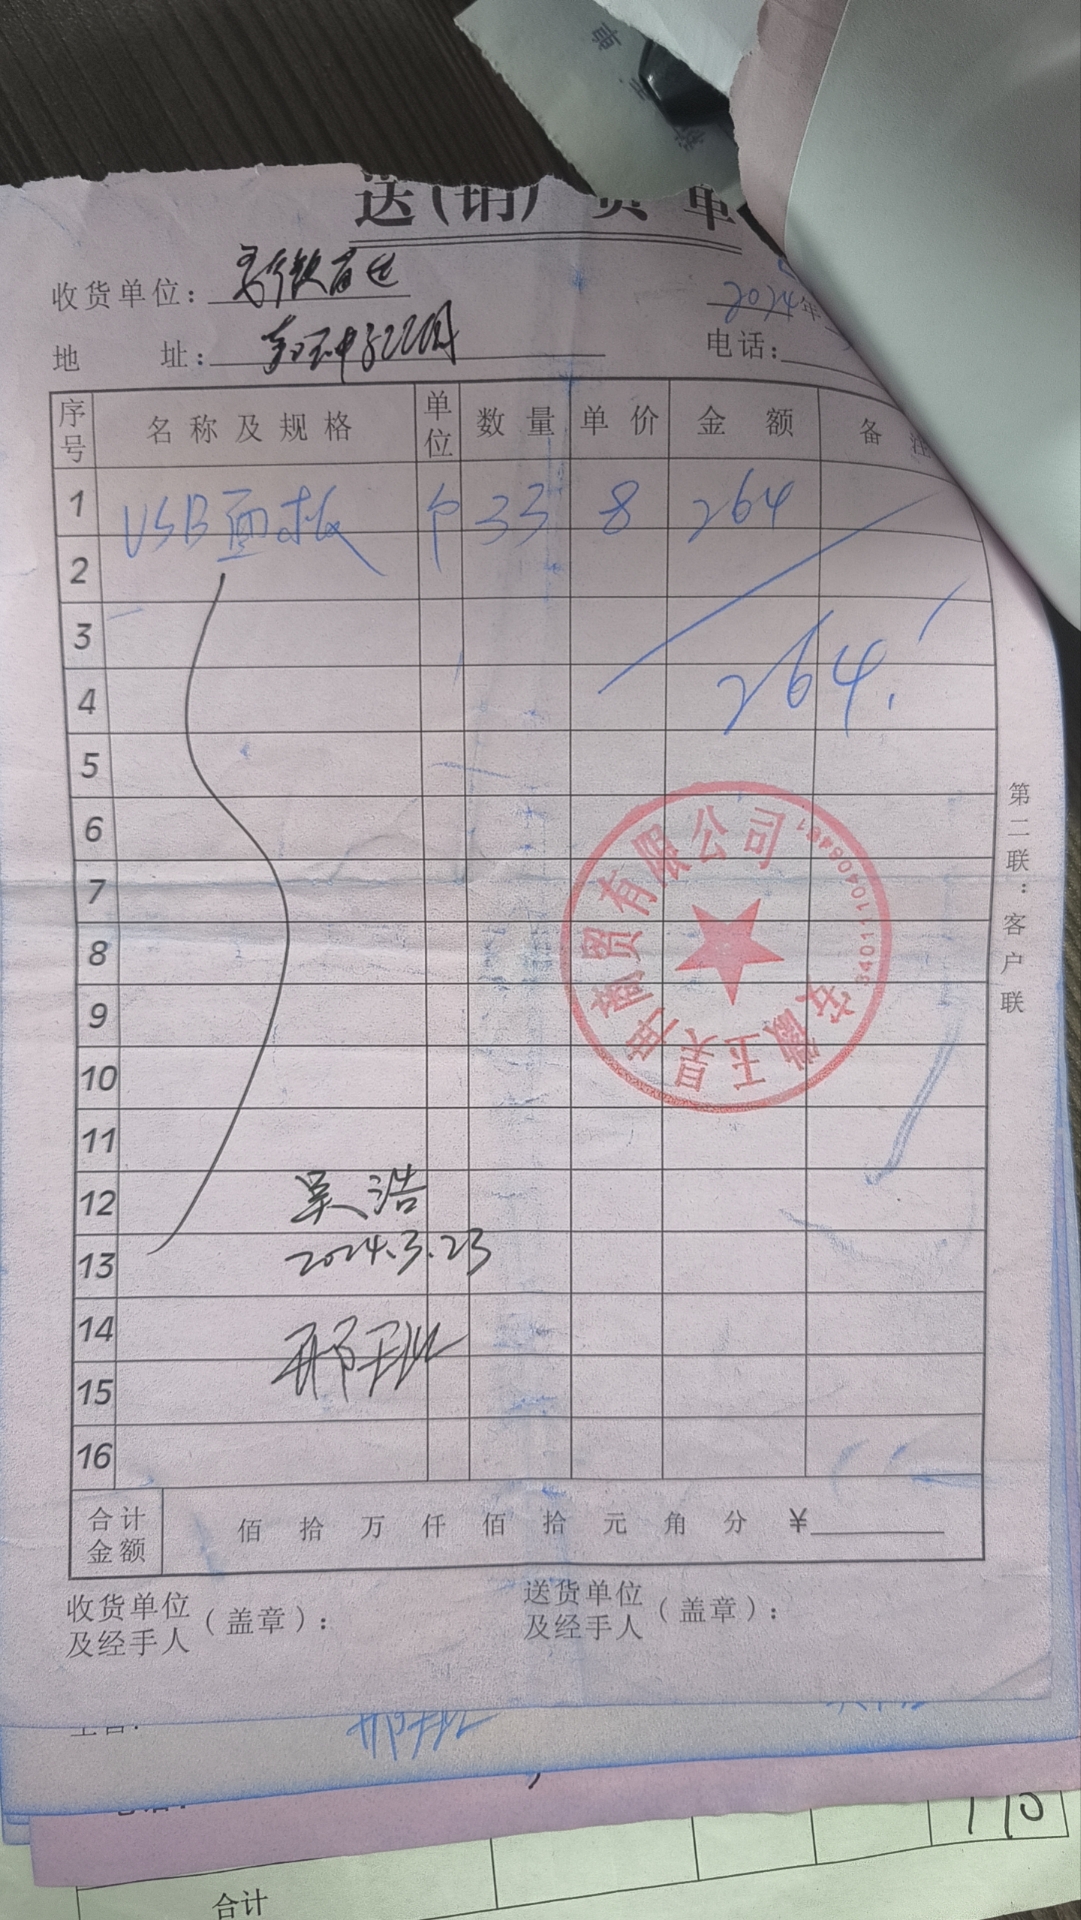 送(销)货单
收货单位:
2024年
地 址:
电话:
序号 名称及规格 单位 数量 单价 金额 备注
1 USB面板 个 33 8 264
2
3
4 264.
5
6
7
8
9
10
11
12 吴浩
13 2024.3.23
14
15
16
安徽玉昊冉商贸有限公司
第二联：客户联
合计金额 佰 拾 万 仟 佰 拾 元 角 分 ¥
收货单位及经手人(盖章)：
送货单位及经手人(盖章)：
合计